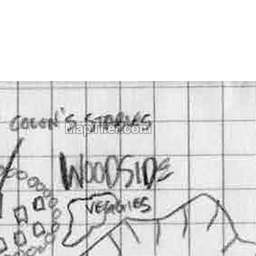 COLEN'S STABLES
MapTiler.com
WOODSIDE
VEGGIES